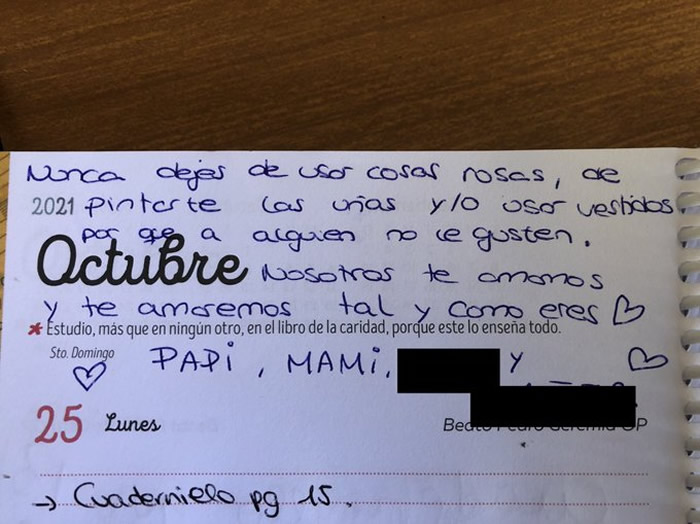 Nunca dejes de usar cosas rosas, de
2021 pintarte las uñas y/o usar vestidos
por que a alguien no le gusten.
Octubre Nosotros te amamos
y te amaremos tal y como eres ♡
* Estudio, más que en ningún otro, en el libro de la caridad, porque este lo enseña todo.
Sto. Domingo
♡ PAPi, MAMi, y ♡
25 Lunes Beato Pedro Geremia OP
→ Cuadernielo pg 15.